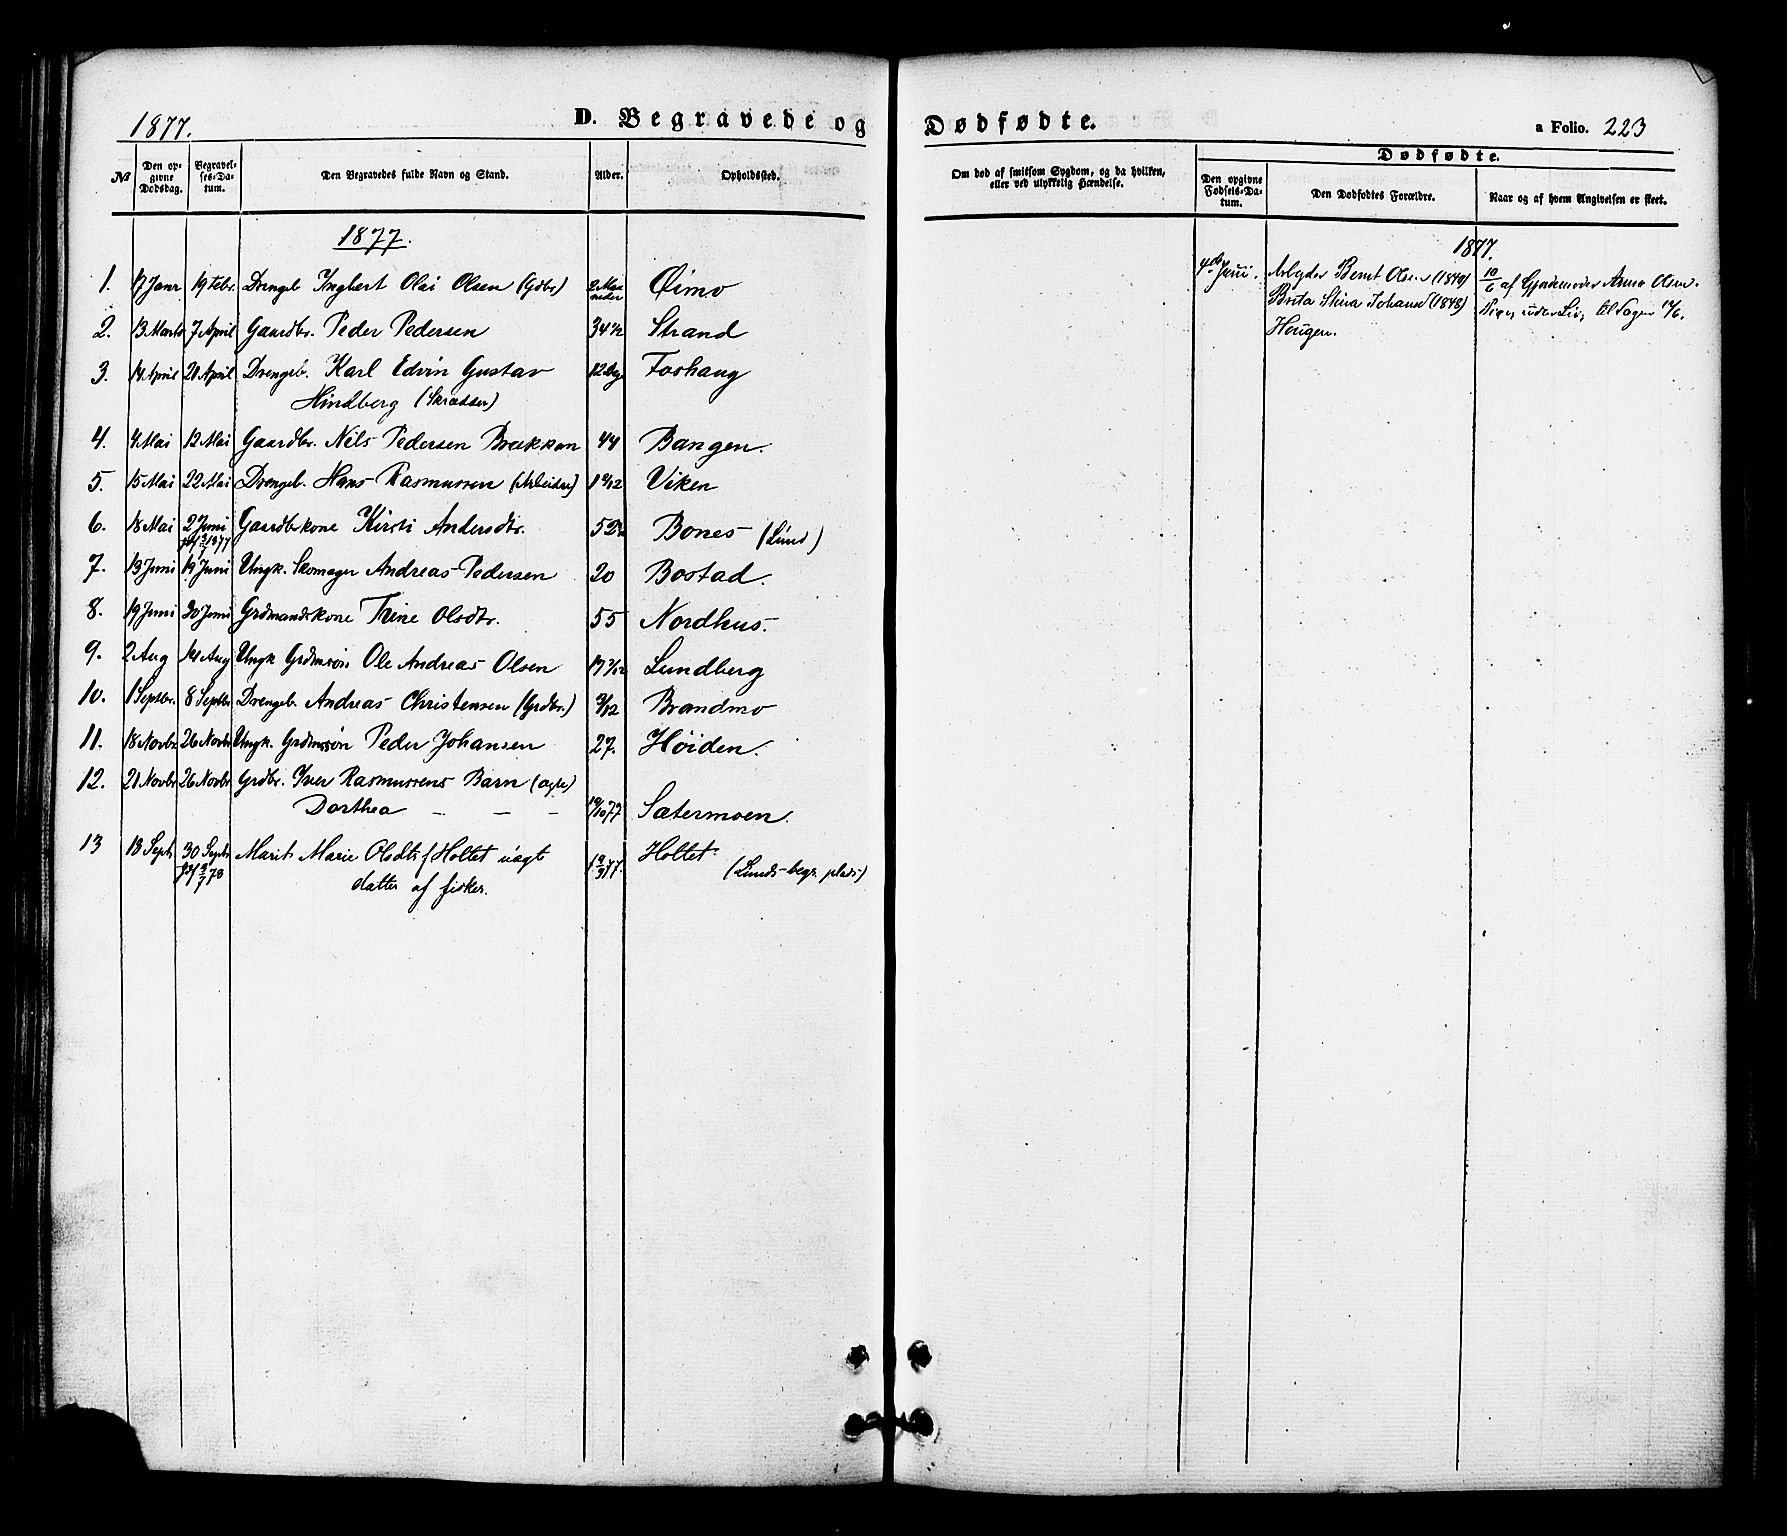 1877.
D. Begravede og Dødfødte.
a Folio. 223
№
Den opgivne Dødsdag.
Begravelses-Datum.
Den Begravedes fulde Navn og Stand.
Alder.
Opholdssted.
Om død af smitsom Sygdom, og da hvilken, eller ved ulykkelig Hændelse.
Dødfødte.
Den opgivne Fødsels-Datum.
Den Dødfødtes Forældre.
Naar og af hvem Angivelsen er skeet.
1877.
1. 17 Janr 19 Febr. Drengeb. Ingbert Olai Olsen (Gdbr) 2 Maaneder Øimo
2. 13 Marts 7 April Gaardbr. Peder Pedersen 34 ½ Strand
3. 14 April 21 April Drengeb. Karl Edvin Gustav 12 Dg. Foshaug
Hindberg (Skrædder)
4. 4 Mai 12 Mai Gaardbr. Nils Pedersen Brækkan 44 Bangen.
5. 15 Mai 22 Mai Drengeb. Hans Rasmussen (Arbeider) Viken
6. 18 Mai 2 Juni Gaardbrkone Kirsti Andersdtr. Bones (Lund)
7. 13 Juni 19 Juni Ungk. Skomager Andreas Pedersen 20 Bostad.
8. 19 Juni 30 Juni Grdmandskone Trine Olsdtr. 55 Nordhus.
9. 2 Aug 14 Aug Ungk Grdmsøn Ole Andreas Olsen Lundberg
10. 1 Septbr. 8 Septbr Drengeb. Andreas Christensen (Grdbr.) Brandmo
11. 18 Novbr 26 Novbr Ungk. Grdmssøn Peder Johansen 27. Høiden.
12. 21 Novbr 26 Novbr Grdbr. Iver Rasmussens Barn (ægte)
Dorthea — — — Sætermoen.
13 13 Septr 30 Septr Marit Marie Olsdtr f Holtet uægt Holtet
datter af fisker. (Lunds-begr. plads)
1877.
4de Juni. Arbeider Bernt Olsen (1840) 10/6 af Gjordemoder Anna Olsen.
Brita Stina Johansd (1848) Pige, uden Liv,
Hougen.